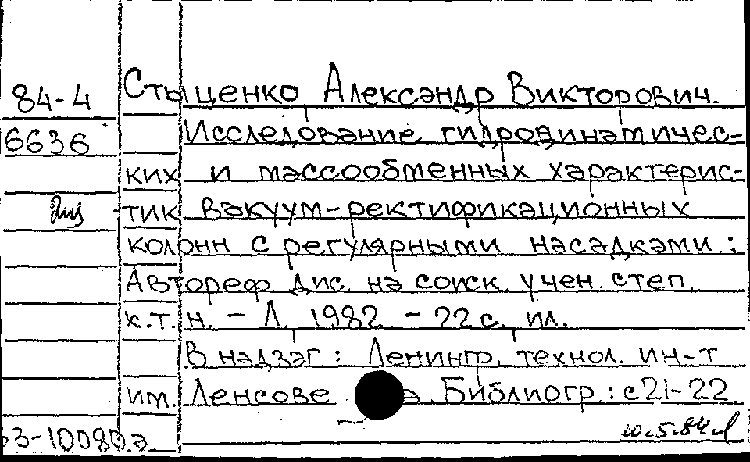 84-4 Стыценко Александр Викторович.
6636 Исследование гидродинамичес-
ких и массообменных характерис-
тик вакуум-ректификационных
колонн с регулярными насадками:
Автореф дис. на соиск. учен. степ.
к.т.н. – Л. 1982 – 22 с. ил.
В надзаг: Ленингр. технол. ин-т
им Ленсове а. Библиогр.: с 21-22
53-10080.а